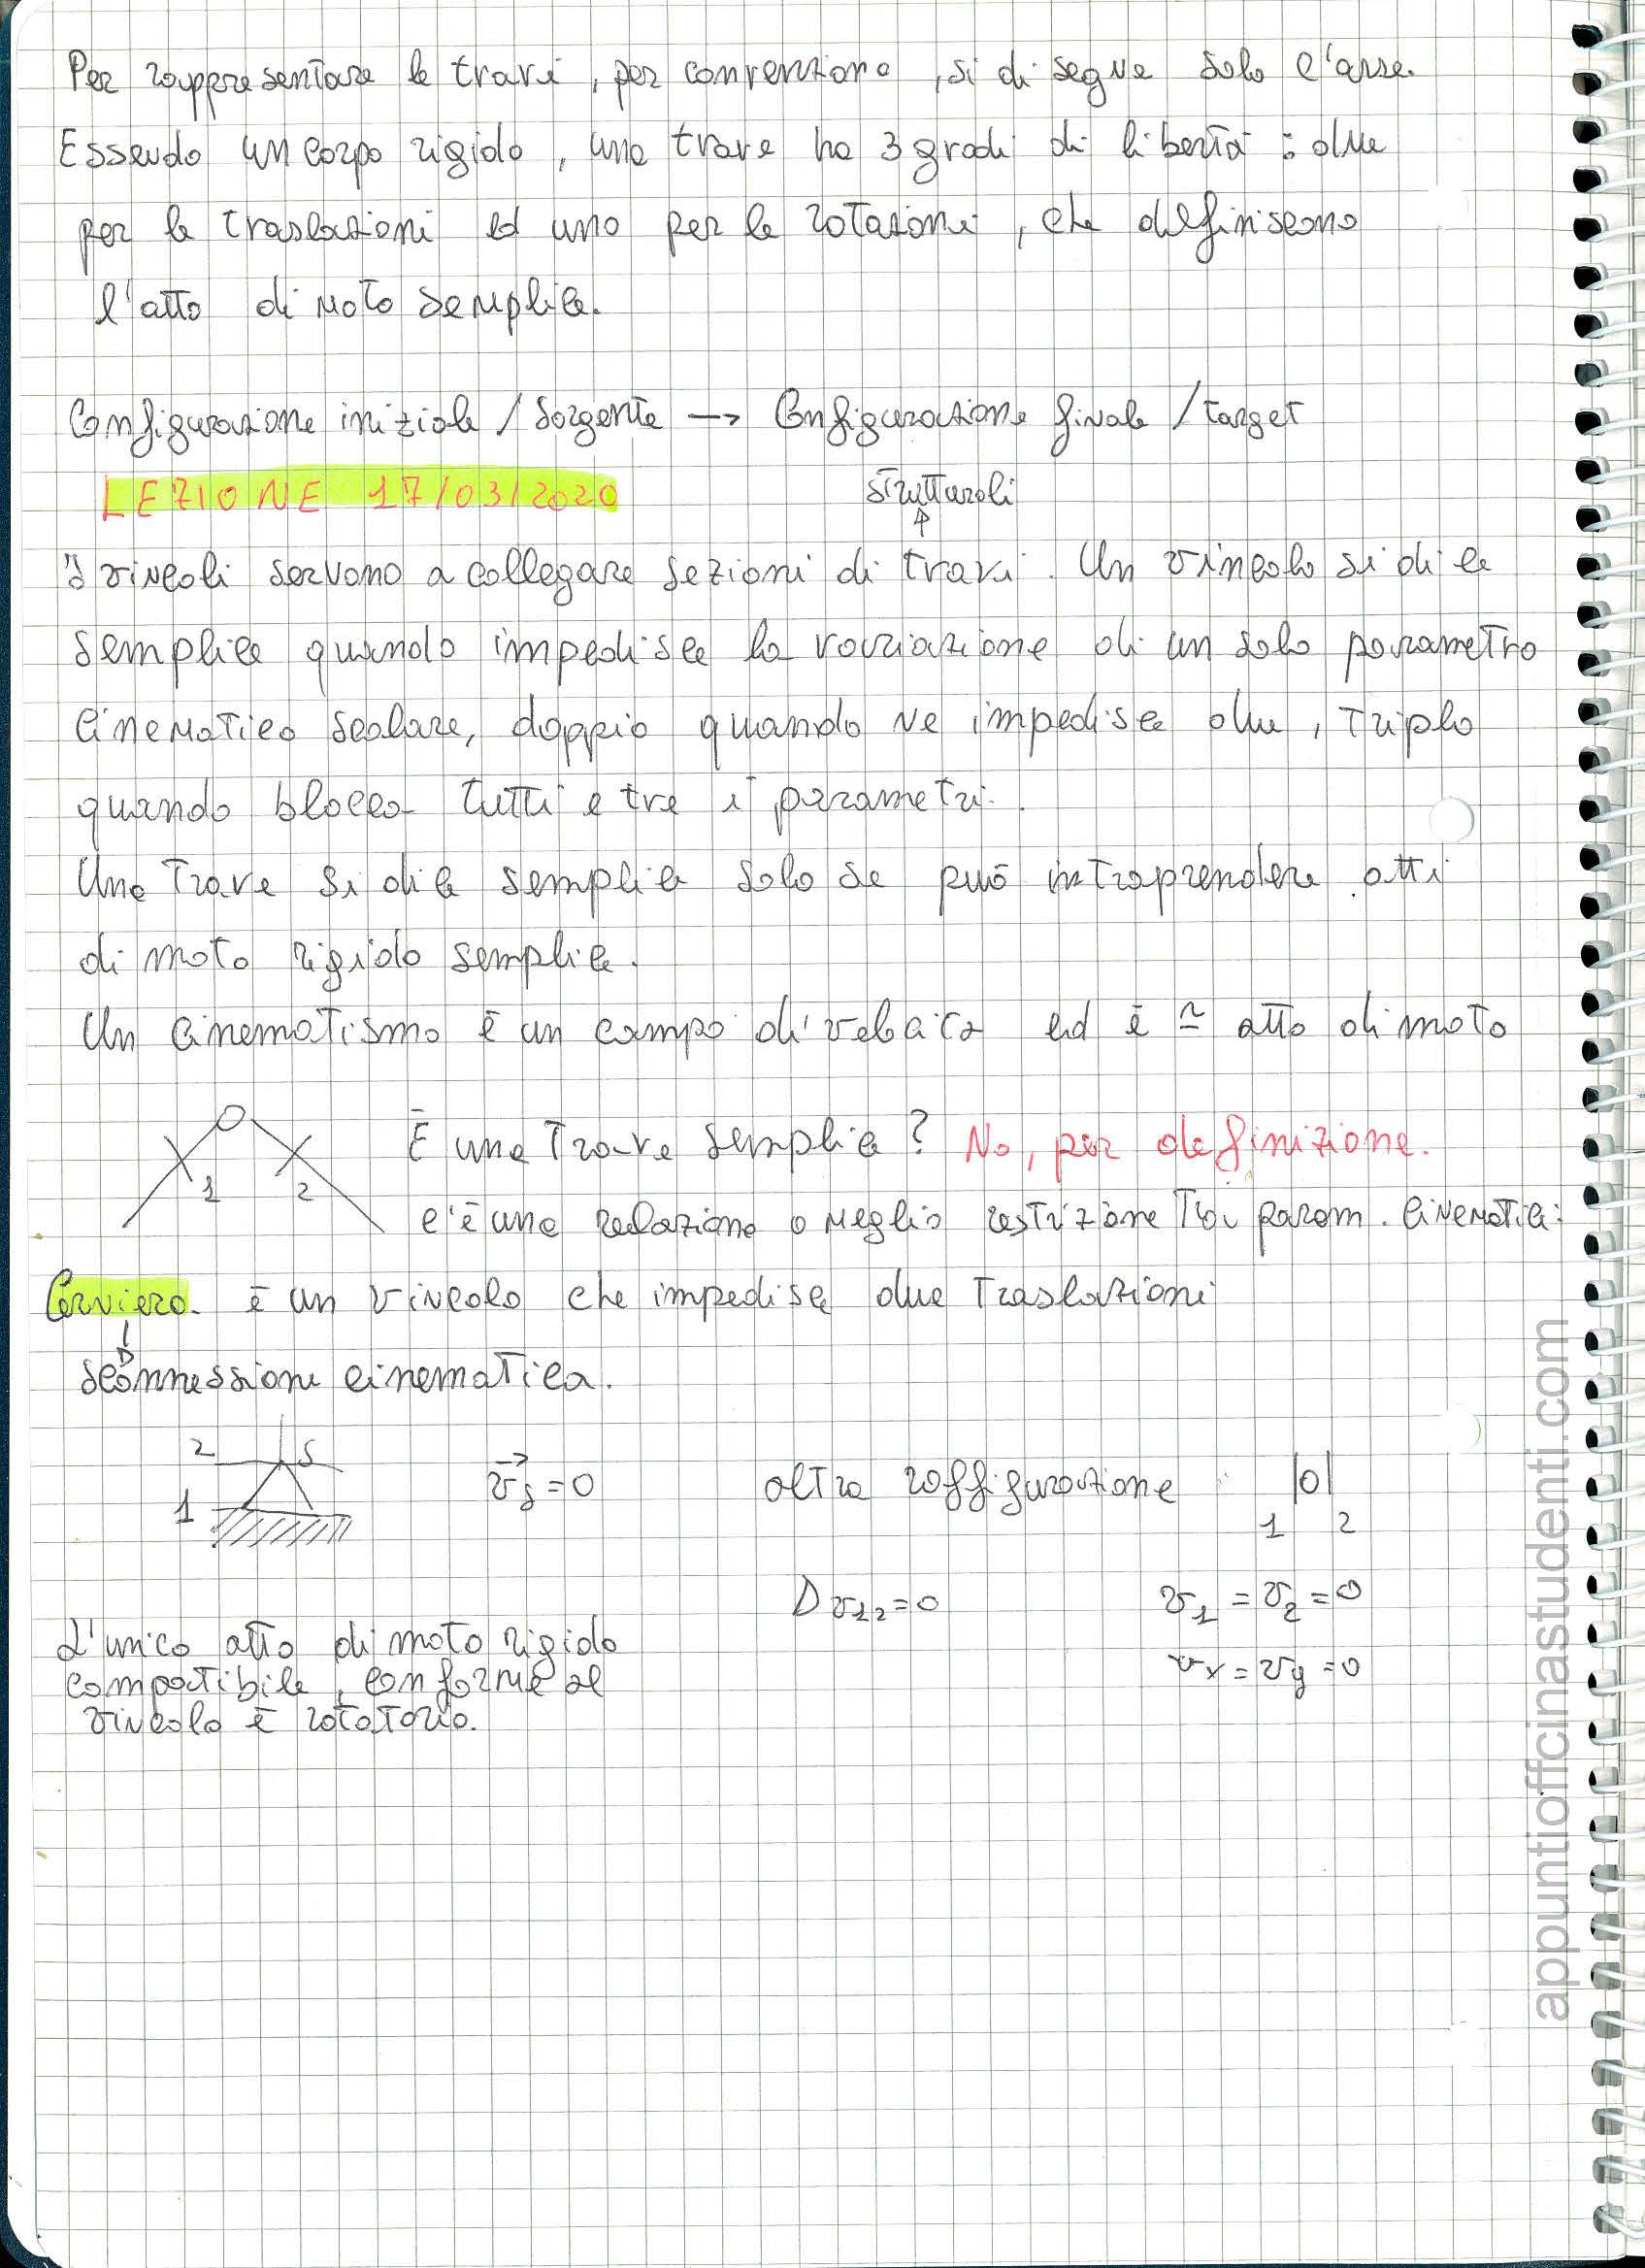 Per rappresentare le travi, per convenzione, si disegna solo l'asse.
Essendo un corpo rigido, una trave ha 3 gradi di libertà: due
per le traslazioni ed uno per le rotazioni, che definiscono
l'atto di moto semplice.
Configurazione iniziale / sorgente → Configurazione finale / target
LEZIONE 17/03/2020
strutturali
I vincoli servono a collegare sezioni di travi. Un vincolo si dice
semplice quando impedisce la variazione di un solo parametro
cinematico scalare, doppio quando ne impedisce due, triplo
quando blocca tutti e tre i parametri.
Una trave si dice semplice solo se può intraprendere atti
di moto rigido semplice.
Un cinematismo è un campo di velocità ed è ≃ atto di moto
1 2
È una trave semplice? No, per definizione.
c'è una relazione o meglio restrizione tra i param. cinematici:
Cerniera. è un vincolo che impedisce due traslazioni
sconnessione cinematica.
2 S
1
v⃗s = 0
altra raffigurazione |0|
1 2
Δv12 = 0
v1 = v2 = 0
vx = vy = 0
L'unico atto di moto rigido
compatibile, conforme al
vincolo è rotatorio.
appuntiofficinastudenti.com